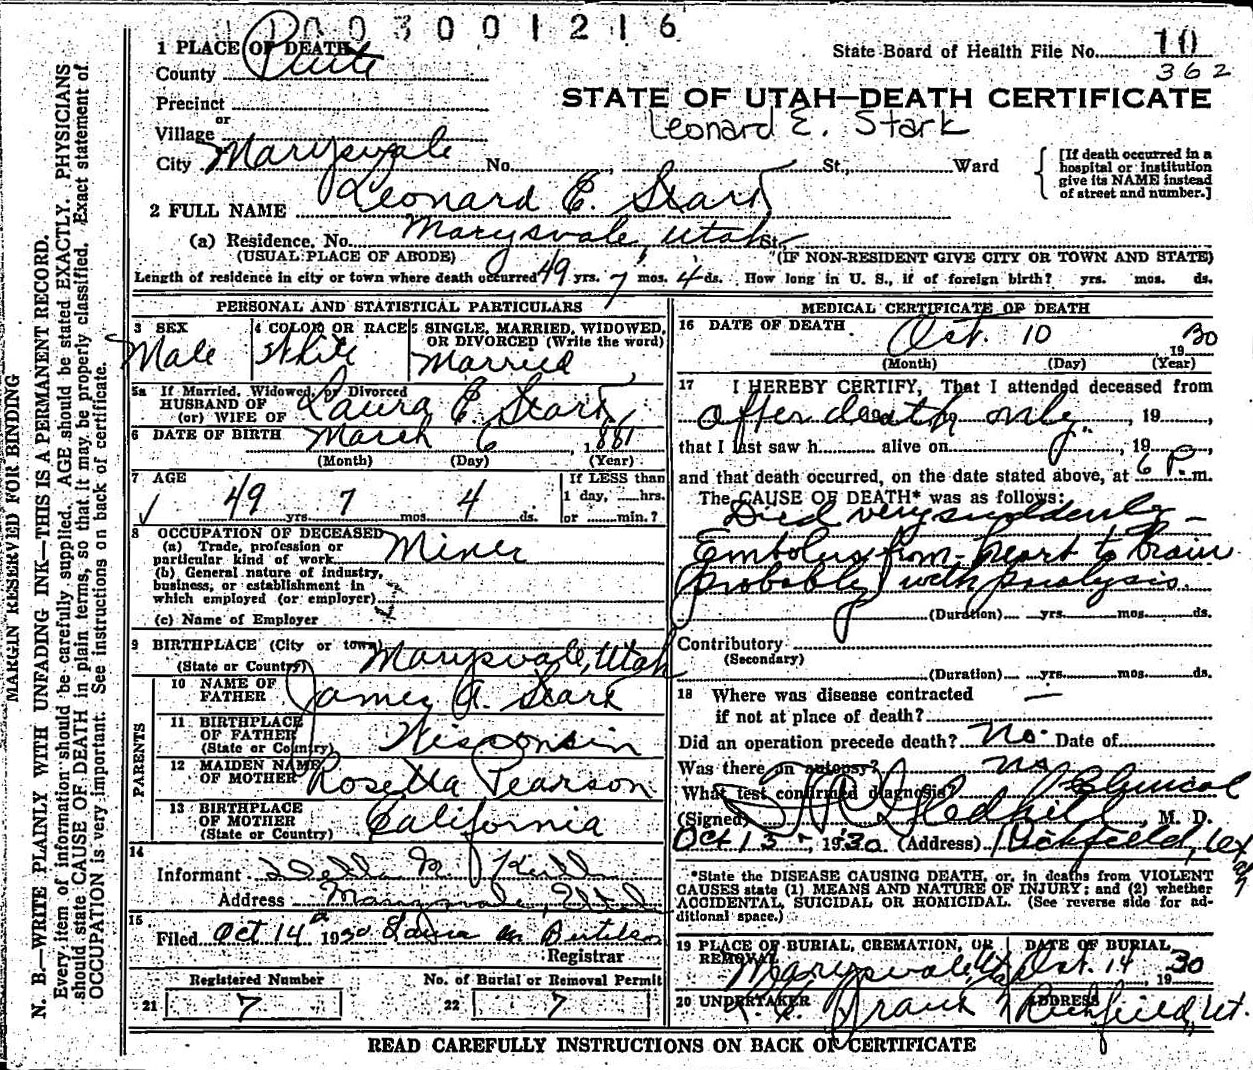 1003001216
1 PLACE OF DEATH
County Piute
State Board of Health File No. 10
362
Precinct
or
Village
STATE OF UTAH—DEATH CERTIFICATE
Leonard E. Stark
City Marysvale No. St., Ward
[If death occurred in a hospital or institution give its NAME instead of street and number.]
2 FULL NAME Leonard E. Stark
(a) Residence, No. Marysvale, Utah St.
(USUAL PLACE OF ABODE) (IF NON-RESIDENT GIVE CITY OR TOWN AND STATE)
Length of residence in city or town where death occurred 49 yrs. 7 mos. 4 ds. How long in U. S., if of foreign birth? yrs. mos. ds.
PERSONAL AND STATISTICAL PARTICULARS
3 SEX 4 COLOR OR RACE 5 SINGLE, MARRIED, WIDOWED, OR DIVORCED (Write the word)
Male White Married
5a If Married, Widowed, or Divorced
HUSBAND OF
(or) WIFE OF Laura E. Stark
6 DATE OF BIRTH March 6, 1881
(Month) (Day) (Year)
7 AGE 49 yrs. 7 mos. 4 ds.
If LESS than 1 day, hrs. or min.?
8 OCCUPATION OF DECEASED
(a) Trade, profession or particular kind of work Miner
(b) General nature of industry, business, or establishment in which employed (or employer)
(c) Name of Employer
9 BIRTHPLACE (City or town)
(State or Country) Marysvale, Utah
PARENTS
10 NAME OF FATHER James A. Stark
11 BIRTHPLACE OF FATHER (State or Country) Wisconsin
12 MAIDEN NAME OF MOTHER Rosetta Pearson
13 BIRTHPLACE OF MOTHER (State or Country) California
14
Informant
Address Marysvale, Utah
15
Filed Oct 14 1930
Registrar
Registered Number No. of Burial or Removal Permit
21 7 22 7
MEDICAL CERTIFICATE OF DEATH
16 DATE OF DEATH Oct. 10 1930
(Month) (Day) (Year)
17 I HEREBY CERTIFY, That I attended deceased from
after death only, 19
that I last saw h alive on , 19
and that death occurred, on the date stated above, at 6 P. m.
The CAUSE OF DEATH* was as follows:
Died very suddenly —
Embolus from heart to brain
probably with paralysis.
(Duration) yrs. mos. ds.
Contributory
(Secondary)
(Duration) yrs. mos. ds.
18 Where was disease contracted
if not at place of death? —
Did an operation precede death? No. Date of
Was there an autopsy? no
What test confirmed diagnosis? Clinical
(Signed) Gledhill, M. D.
Oct 15, 1930 (Address) Richfield, Utah
*State the DISEASE CAUSING DEATH, or, in deaths from VIOLENT
CAUSES state (1) MEANS AND NATURE OF INJURY; and (2) whether
ACCIDENTAL, SUICIDAL OR HOMICIDAL. (See reverse side for ad-
ditional space.)
19 PLACE OF BURIAL, CREMATION, OR REMOVAL DATE OF BURIAL
Marysvale, Ut Oct. 14 1930
20 UNDERTAKER ADDRESS
Richfield, Ut.
READ CAREFULLY INSTRUCTIONS ON BACK OF CERTIFICATE
MARGIN RESERVED FOR BINDING
N. B.—WRITE PLAINLY WITH UNFADING INK—THIS IS A PERMANENT RECORD.
Every item of information should be carefully supplied. AGE should be stated EXACTLY. PHYSICIANS
should state CAUSE OF DEATH in plain terms, so that it may be properly classified. Exact statement of
OCCUPATION is very important. See instructions on back of certificate.